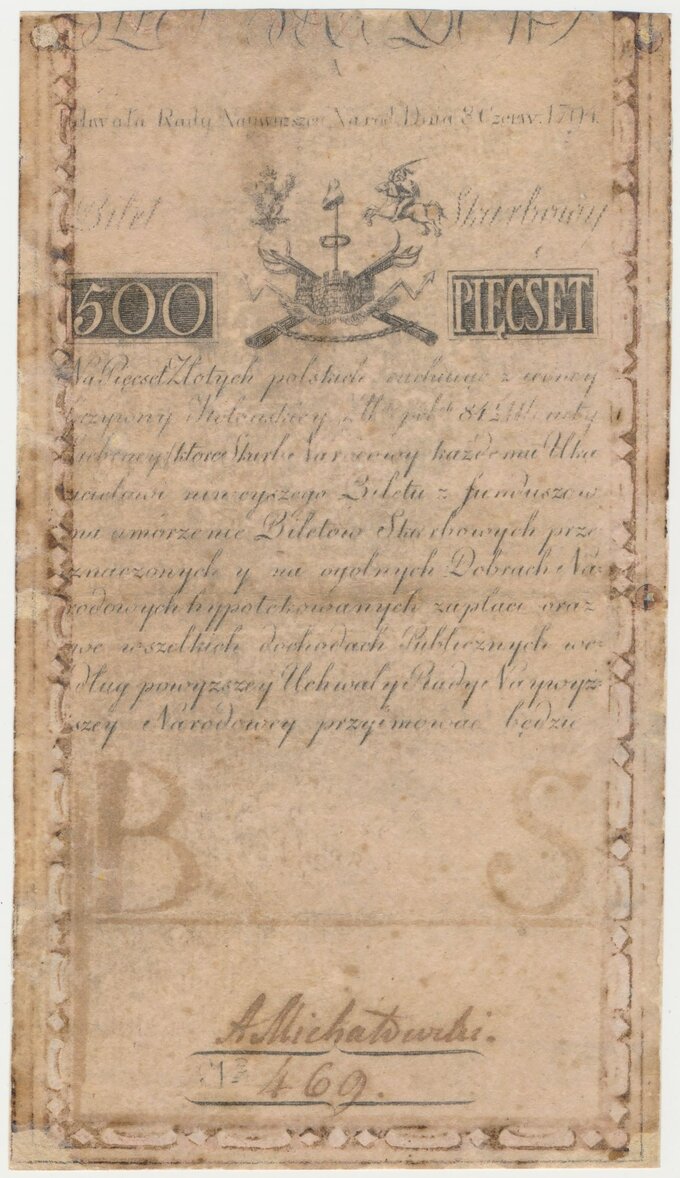 Uchwała Rady Naywyzszey Narod. Dnia 8 Czerw. 1794.
Bilet Skarbowy
500 PIĘCSET
Na Pięcset Złotych polskich rachuiąc z
Kolońskiey 84
ktore Skarb Narodowy każdemu Uka
zicielowi ninieyszego Biletu z funduszow
na umorzenie Biletow Skarbowych prze
znaczonych y na ogolnych Dobrach Na:
rodowych hypotekowanych zapłaci oraz
we wszelkich dochodach Publicznych we:
dług powyższey Uchwały Rady Naywyż:
szey Narodowey przyimować będzie
B S
A Michałowski.
N 3
469.